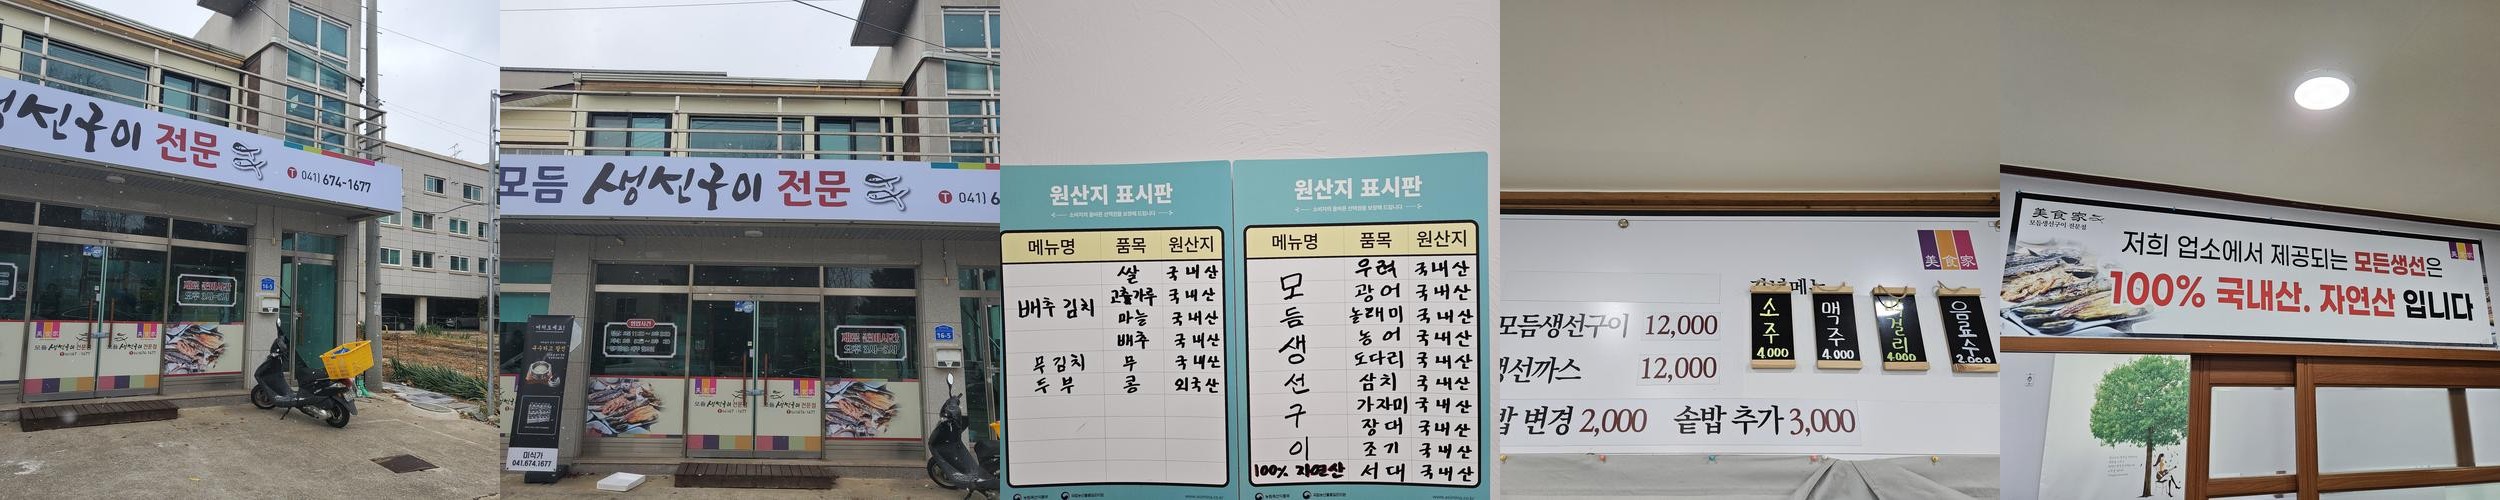 생선구이 전문
T 041) 674-1677
16-5
모듬 생선구이 전문
T 041) 6
영업시간
재료 준비시간
16-5
미식가
041.674.1677
원산지 표시판
메뉴명 품목 원산지
쌀 국내산
배추 김치 고춧가루 국내산
마늘 국내산
배추 국내산
무김치 무 국내산
두부 콩 외국산
원산지 표시판
메뉴명 품목 원산지
모듬생선구이
우럭 국내산
광어 국내산
놀래미 국내산
농어 국내산
도다리 국내산
삼치 국내산
가자미 국내산
장대 국내산
조기 국내산
100% 자연산 서대 국내산
美食家
모듬생선구이 12,000
생선까스 12,000
밥 변경 2,000 솥밥 추가 3,000
소주 4,000
맥주 4,000
4,000
음료수 2,000
美食家
모듬생선구이 전문점
저희 업소에서 제공되는 모든생선은
100% 국내산. 자연산 입니다